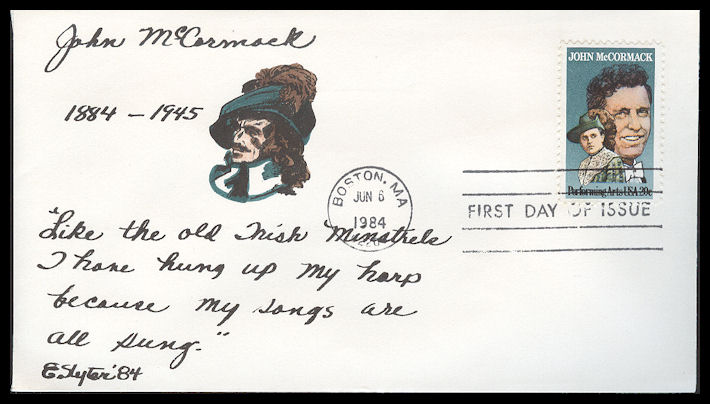 John McCormack
1884 - 1945
JOHN McCORMACK
Performing Arts USA 20c
BOSTON, MA
JUN 6
1984
FIRST DAY OF ISSUE
"Like the old Irish Minstrels
I have hung up my harp
because my songs are
all sung."
E. Slyter '84